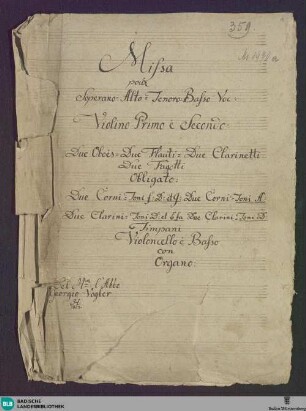 359
Missa
Soprano Alto = Tenore Basso Voc
Violino Primo è Secondo
Due Oboès = Due Flauti = Due Clarinetti
Due Fagotti
Obligate
Due Corni = Toni Due Corni = Toni A.
Due Clarini = Toni D. Due Clarini = Toni D.
è Timpani
Violoncello è Basso
con
Organo
Del l'Abbé
Georgio Vogler
BLB BADISCHE
LANDESBIBLIOTHEK